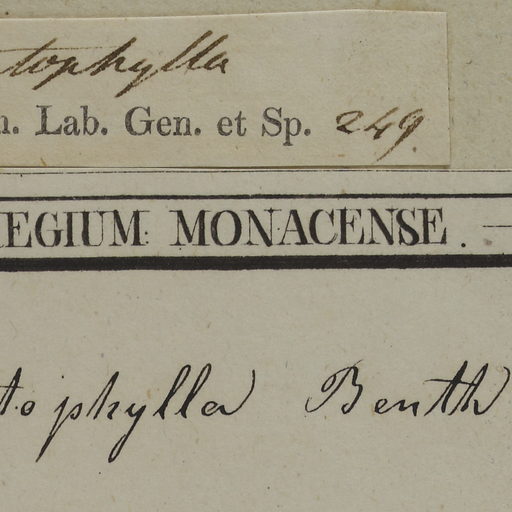 tophylla
n. Lab. Gen. et Sp. 249.
REGIUM MONACENSE.
tophylla Benth